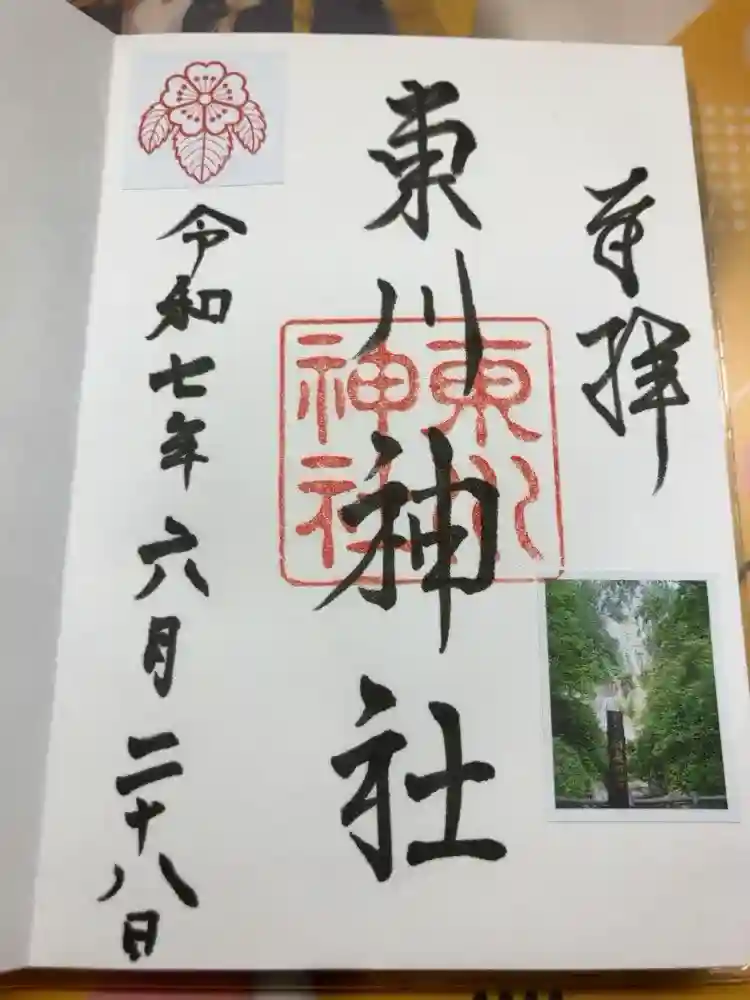 奉拝
東川神社
東川
神社
令和七年六月二十八日